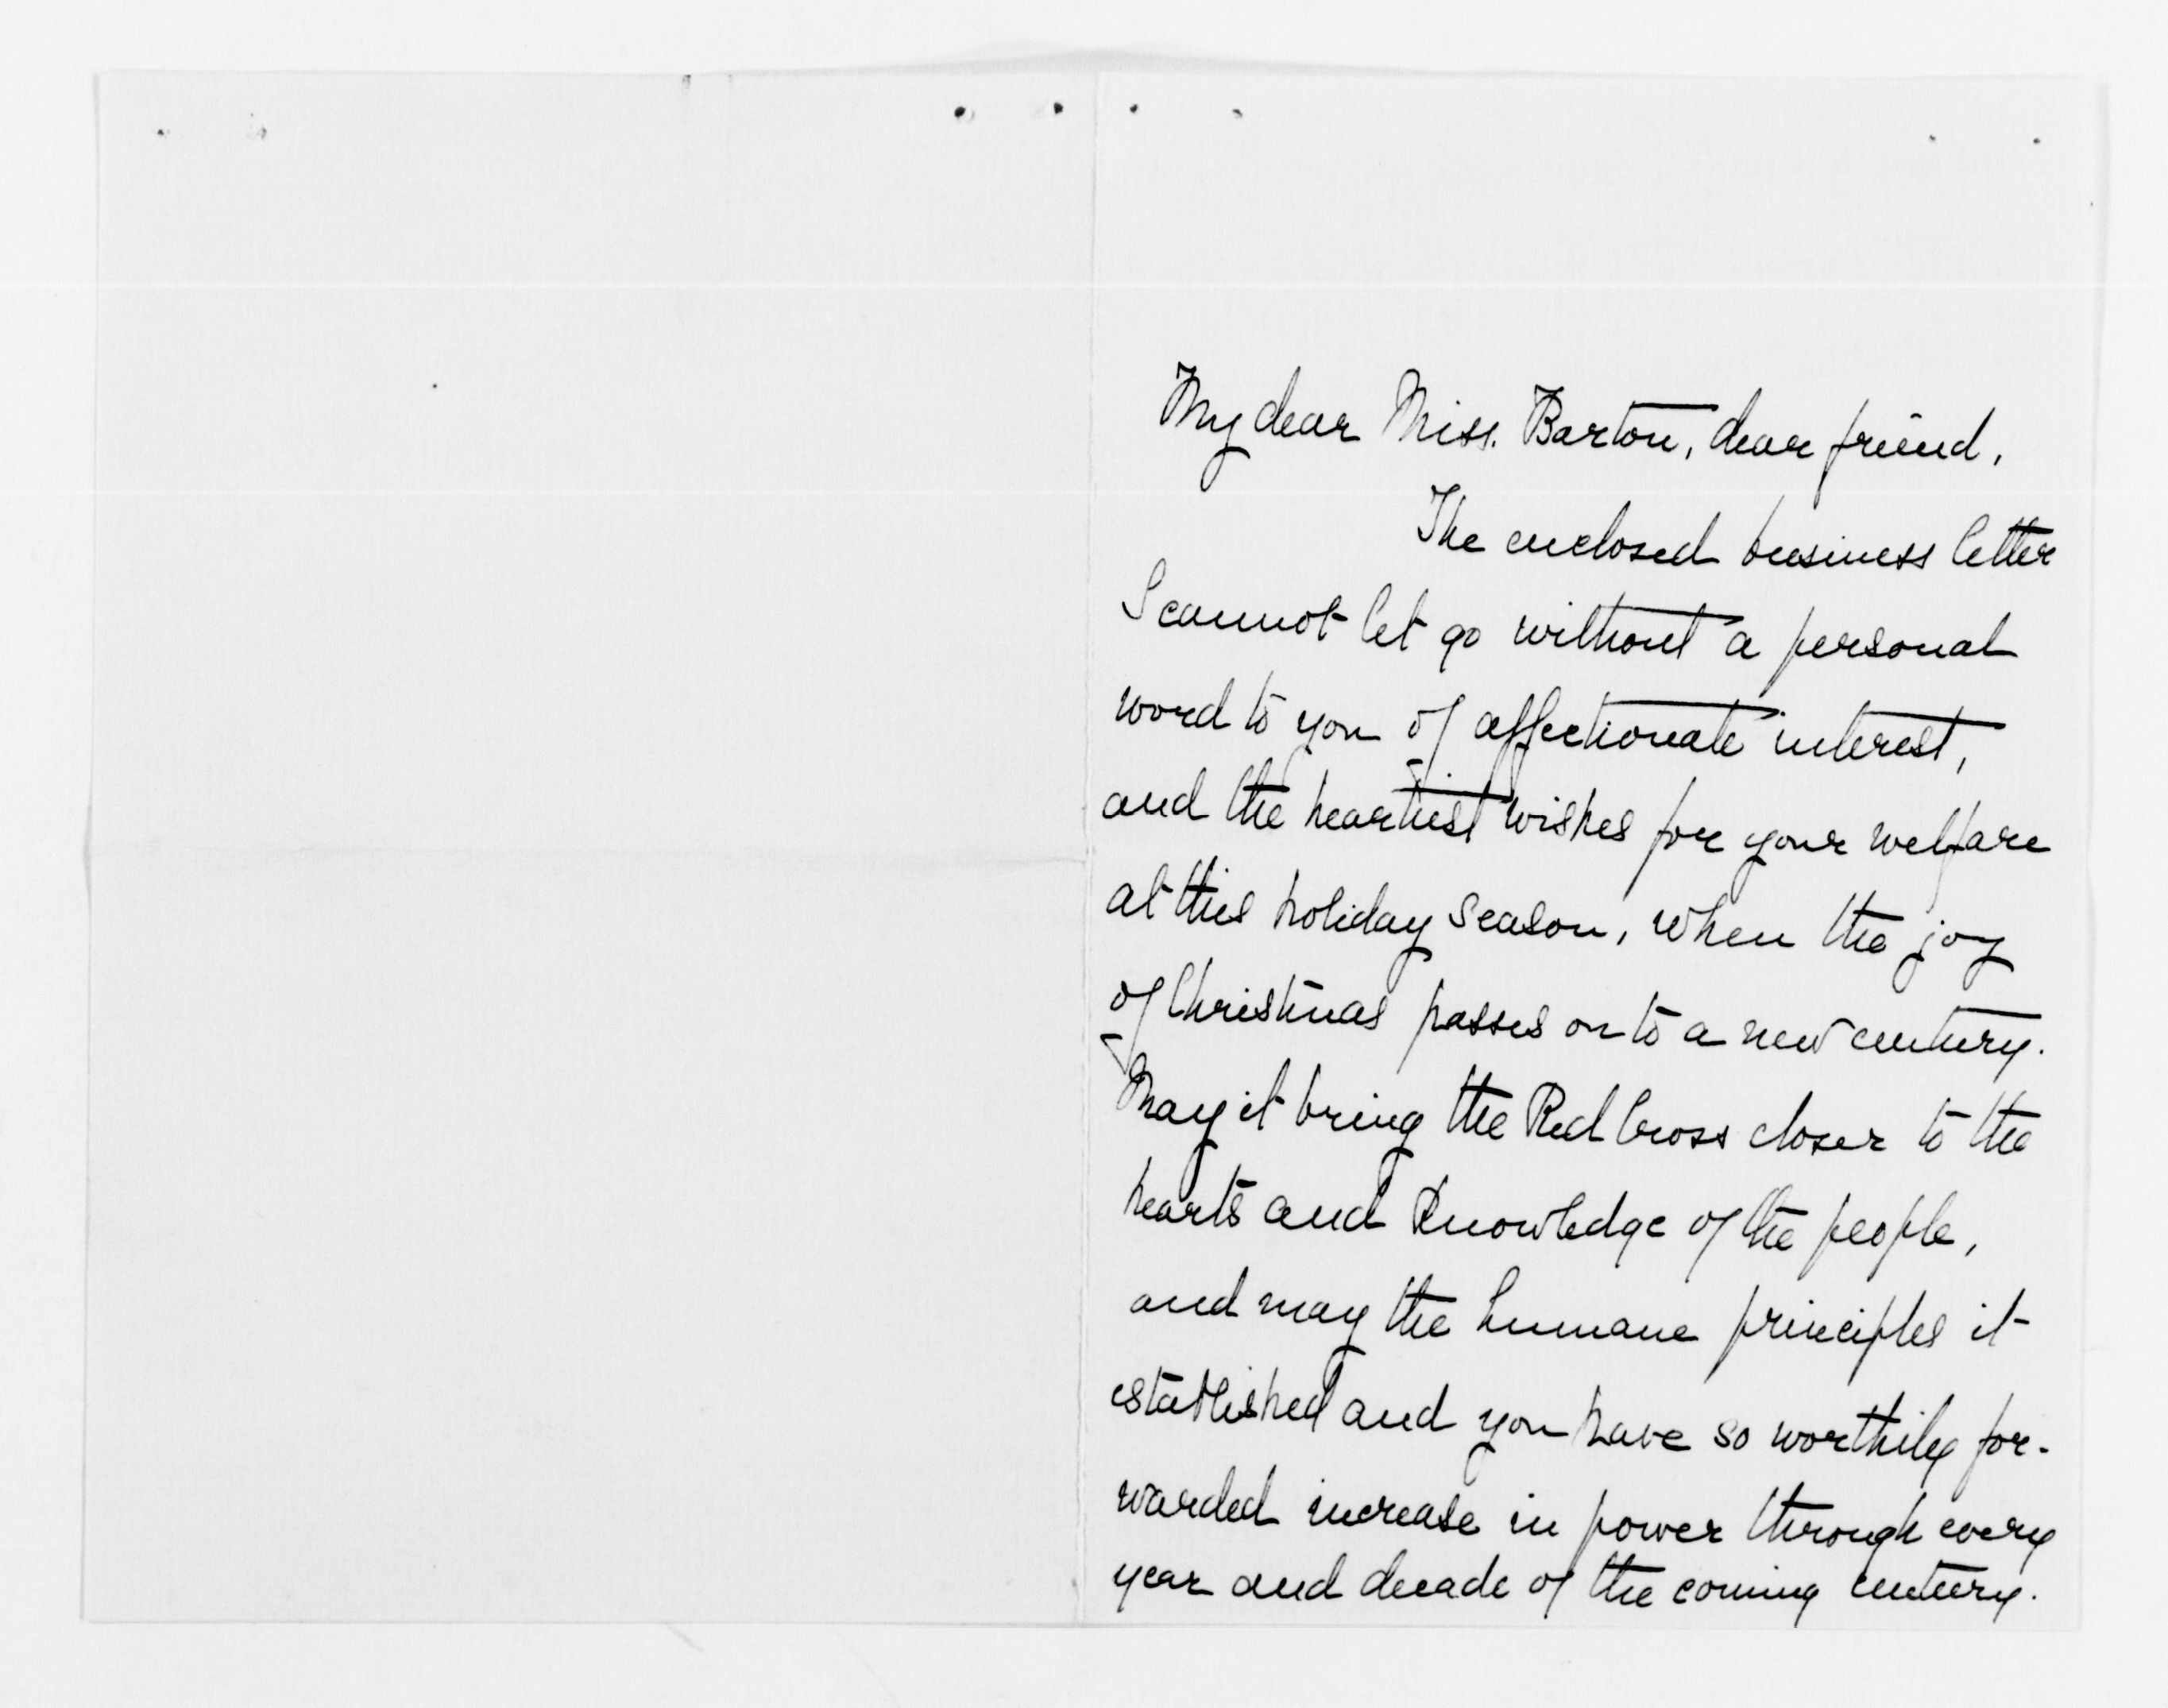 My dear Miss. Barton, dear friend,
The enclosed business letter
I cannot let go without a personal
word to you of affectionate interest,
and the heartiest wishes for your welfare
at this holiday season, when the joy
of Christmas passes on to a new century.
May it bring the Red Cross closer to the
hearts and knowledge of the people,
and may the humane principles it
established and you have so worthily for-
warded increase in power through every
year and decade of the coming century.